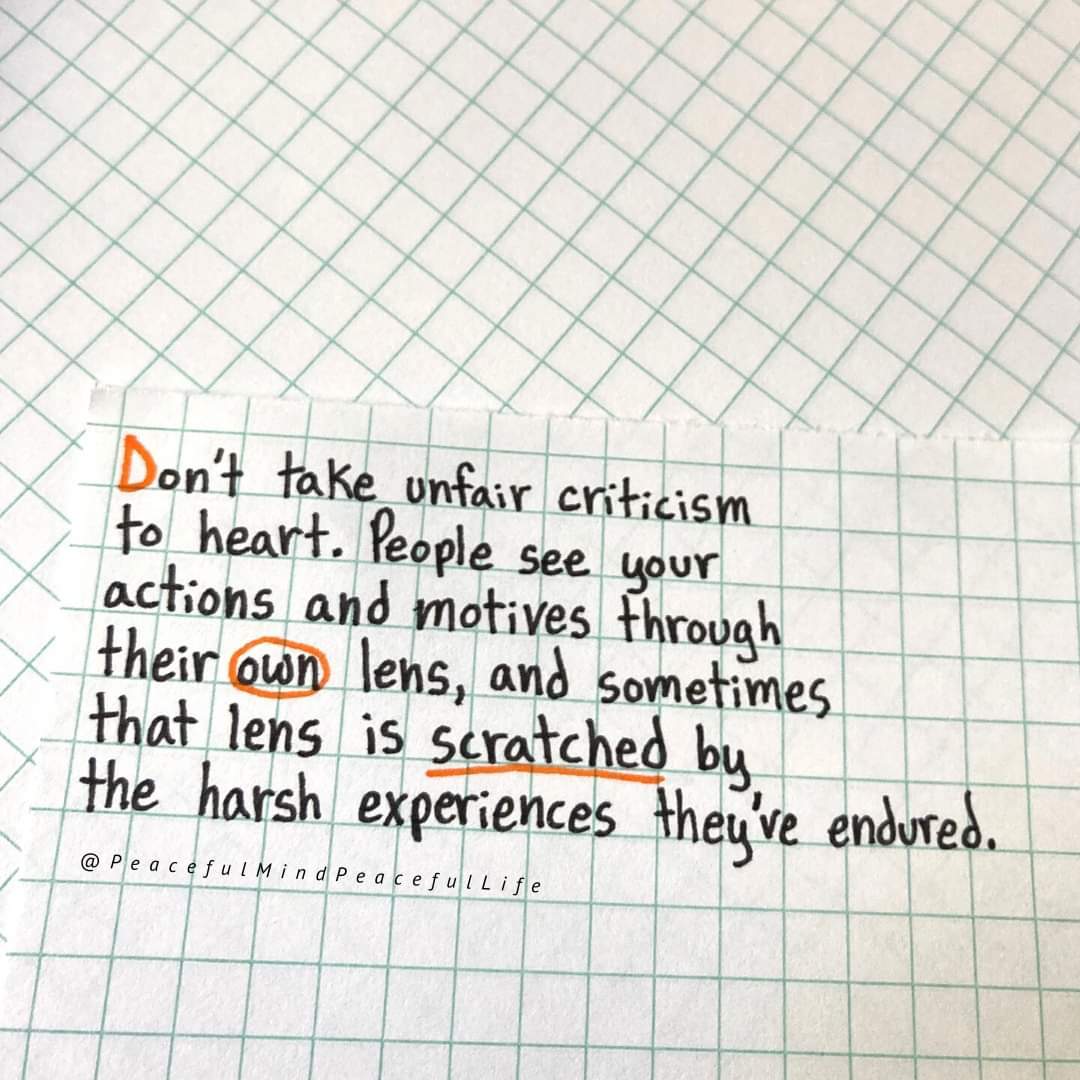 Don't take unfair criticism
to heart. People see your
actions and motives through
their own lens, and sometimes
that lens is scratched by
the harsh experiences they've endured.
@PeacefulMindPeacefulLife